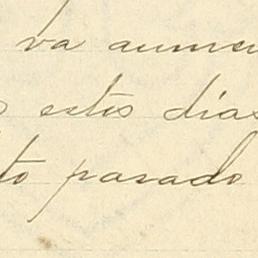 va aumen
s estos días
to pasado